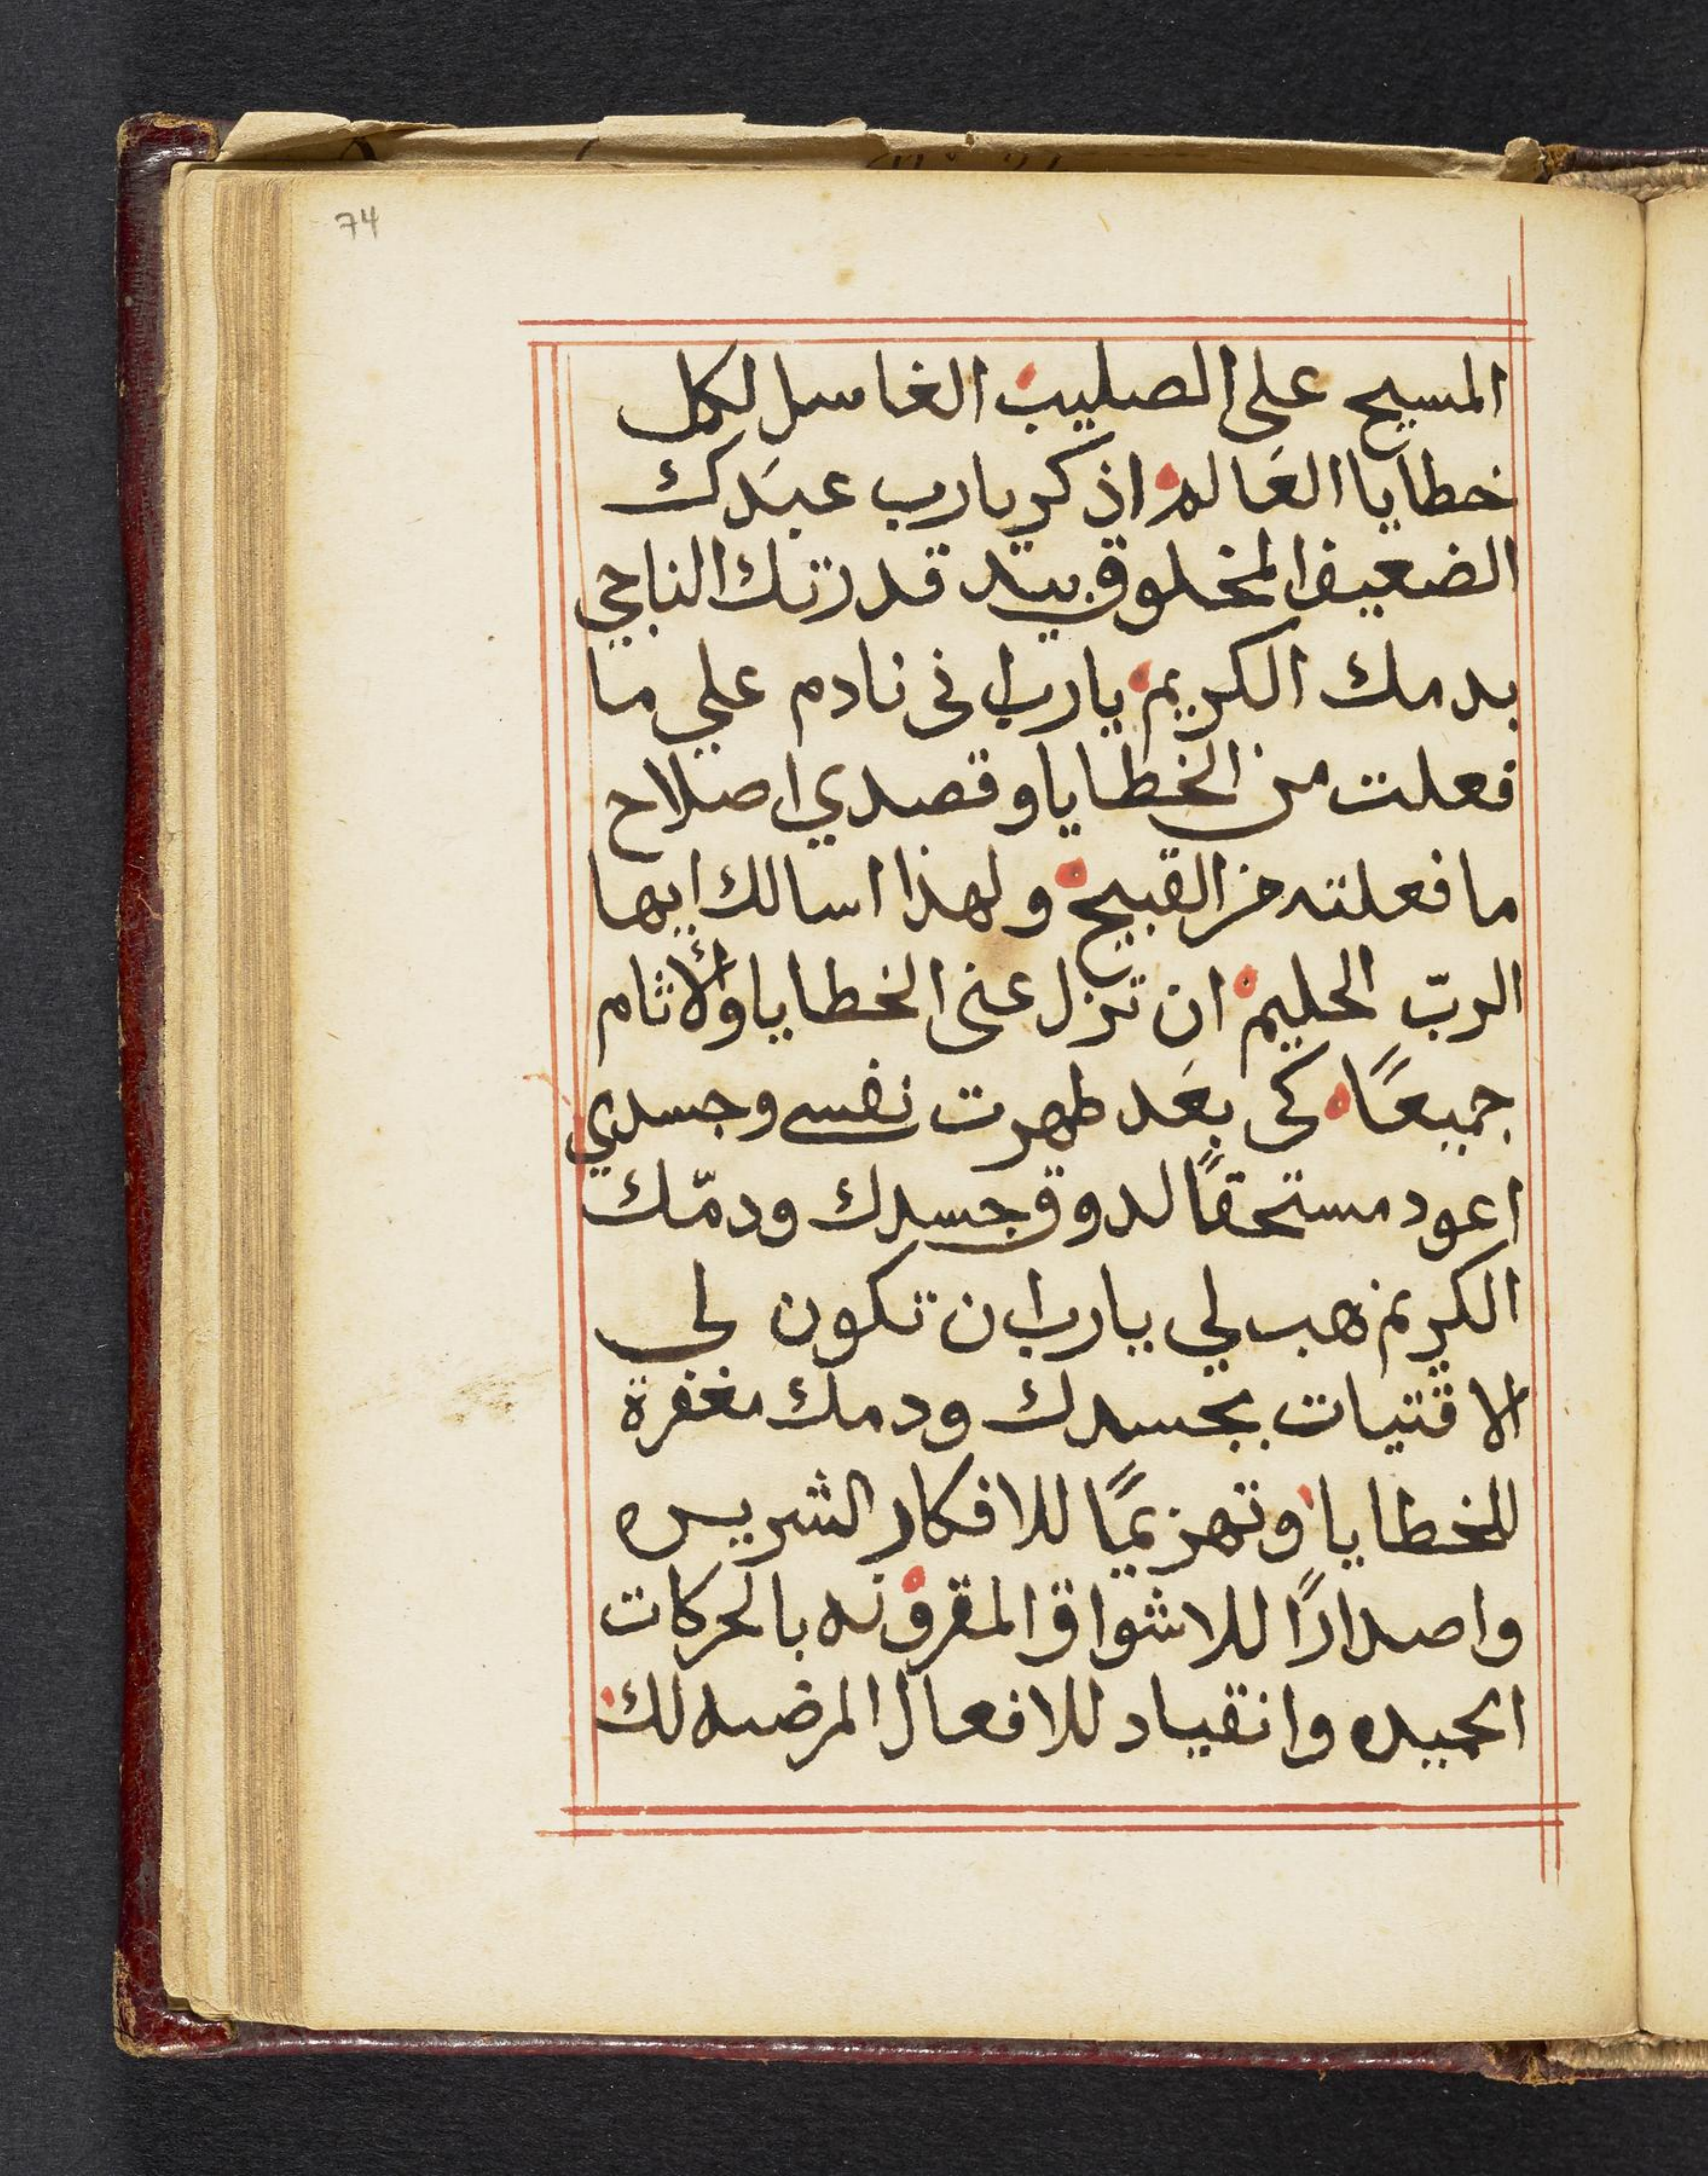 74
المسيح على الصليب الغاسل لكل
خطايا العَالم اذكر يارب عبدَك
الضعيف المخلوق بيد قدرتك الناجي
بدمك الكريم يارب اني نادم علي ما
فعلت من الخطايا وقصدي اصلاح
ما فعلته من القبيح ولهذا اسالك ايها
الربّ الحليم ان تزل عني الخطايا والاثام
جميعًا كي بعَد طهرت نفسي وجسدي
اعود مستحقًا لدوق جسدك ودمّك
الكريم هب لي يارب ان تكون لي
الاقتيات بجسدك ودمك مغفرة
للخطايا وتهزيمًا للافكار الشريره
واصدارًا للاشواق المقرونه بالحركات
الحميده وانقياد للافعال المرضيه لك